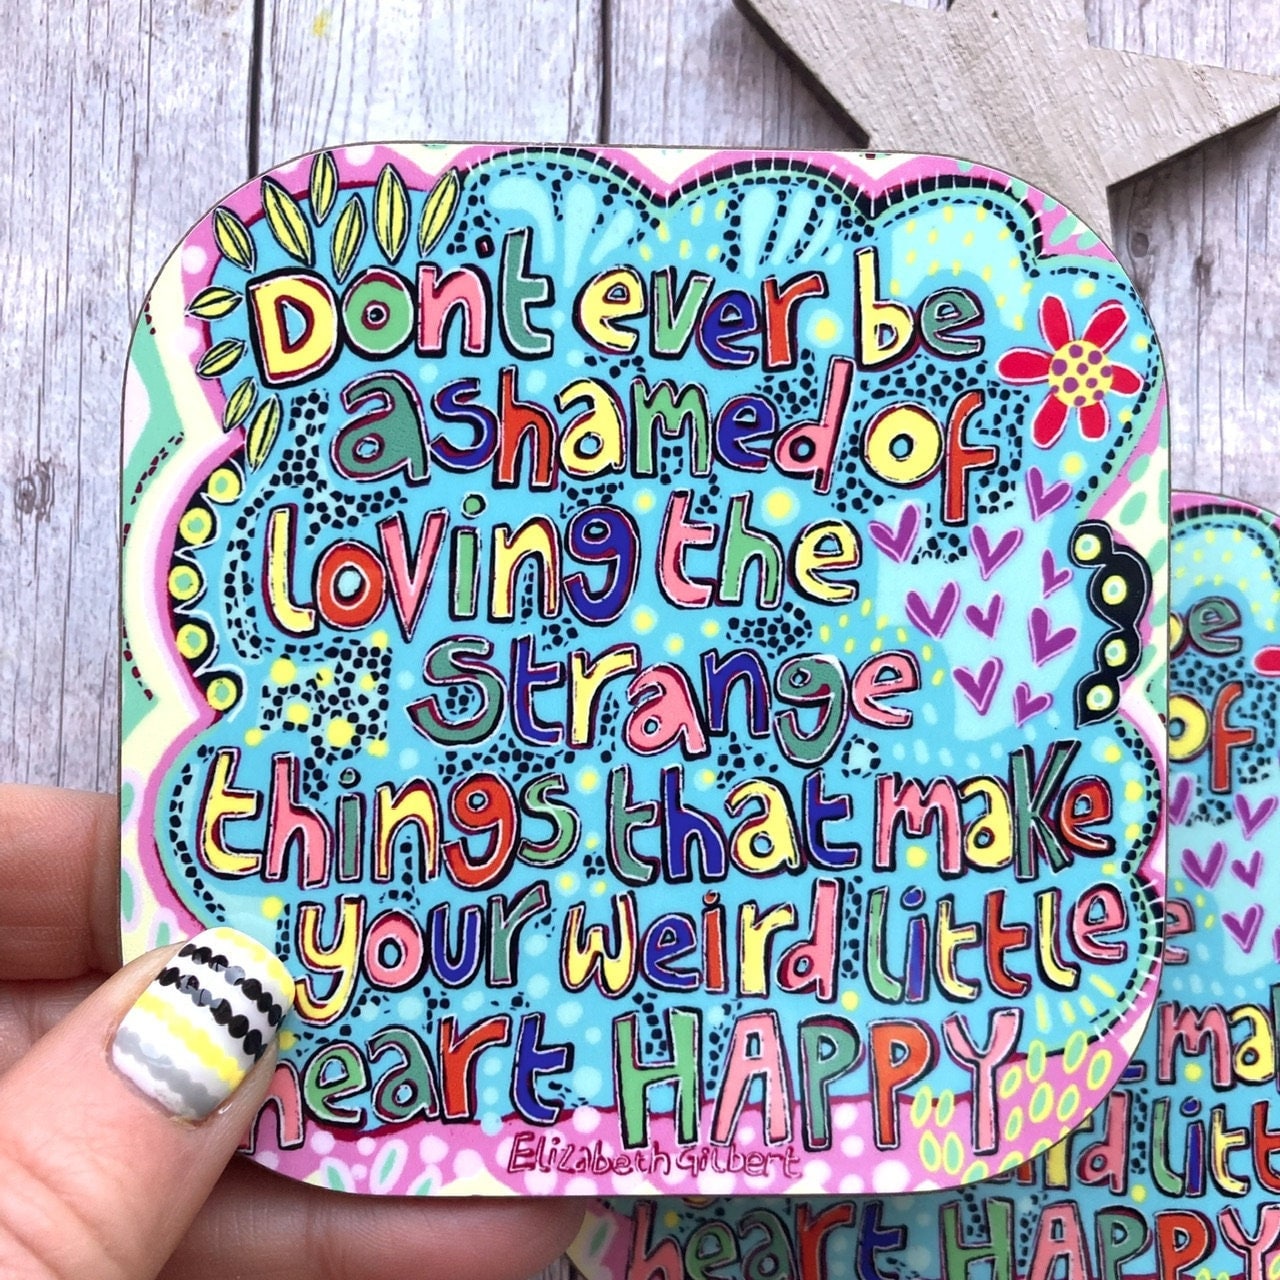 Don't ever be
ashamed of
loving the
strange
things that make
your weird little
heart HAPPY
Elizabeth Gilbert
be
of
e
mak
d litt
heart HAPPY